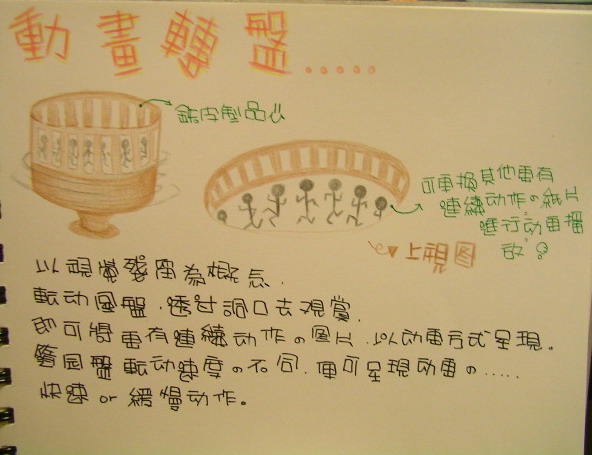 動畫轉盤.....
鉄皮製品
可更換其他更有
連續动作の紙片
進行动画播
放
上視图
以視覺殘留為概念,
転动圓盤,透过洞口去观賞,
即可將画有連續动作の圖片,以动画方式呈現。
隨圓盤転动速度の不同,便可呈現动画の.....
快速or緩慢动作。